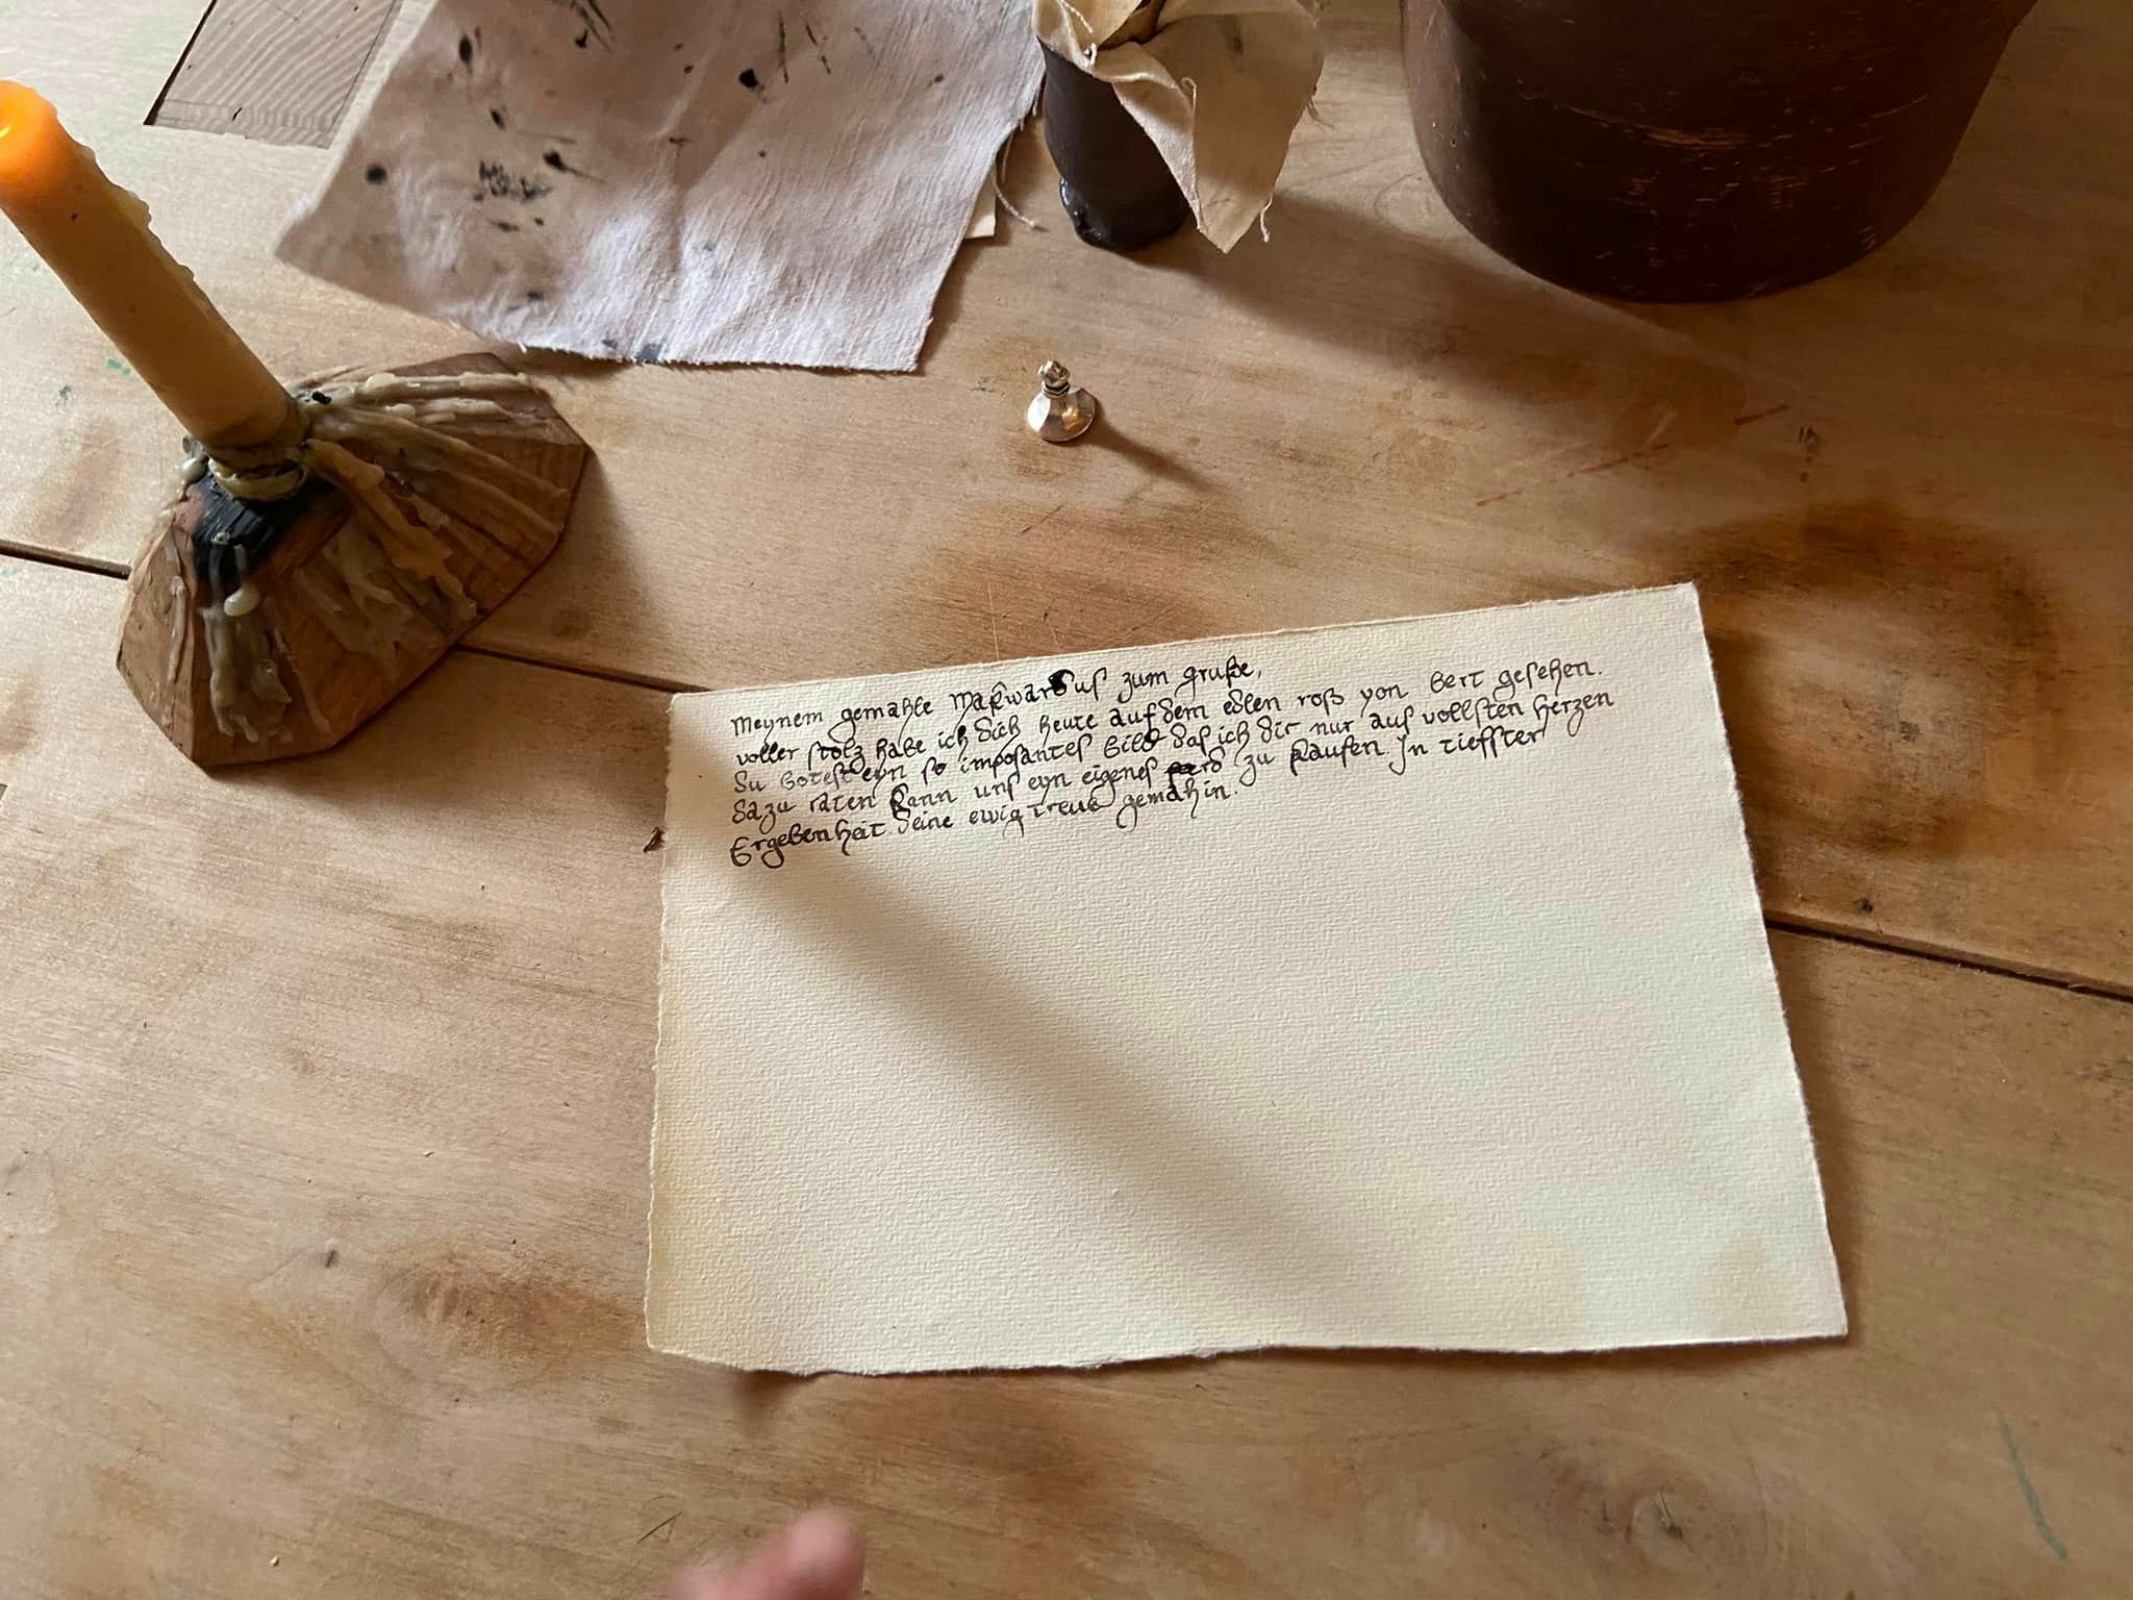 Meynem gemahle Markwardus zum gruße,
voller stolz habe ich dich heute auf dem edlen roß von Bert gesehen.
Du botest eyn so imposantes Bild das ich dir nur aus vollsten herzen
dazu raten kann uns eyn eigenes zu kaufen. In tieffster
Ergebenheit. deine ewig treue gemahin.